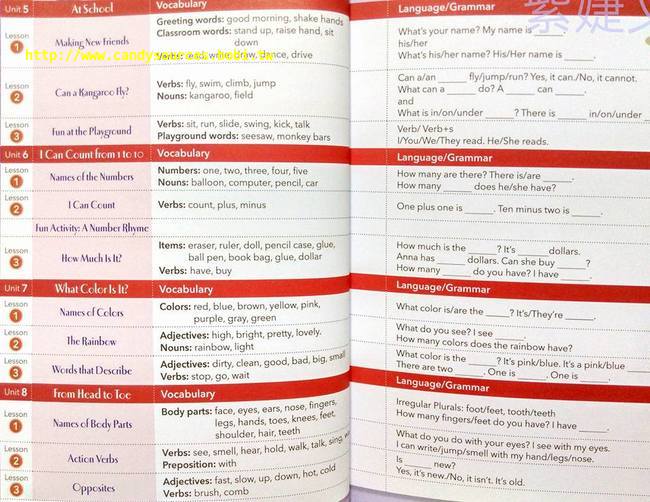 Unit 5 At School Vocabulary Language/Grammar
紫婕
Lesson 1 Making New Friends
Greeting words: good morning, shake hands
Classroom words: stand up, raise hand, sit
down
What's your name? My name is ______.
his/her
What's his/her name? His/Her name is ______.
Lesson 2 Can a Kangaroo Fly?
Verbs: fly, swim, climb, jump
Nouns: kangaroo, field
Can a/an ______ fly/jump/run? Yes, it can./No, it cannot.
What can a ______ do? A ______ can ______.
and
What is in/on/under ______? There is ______ in/on/under
Lesson 3 Fun at the Playground
Verbs: sit, run, slide, swing, kick, talk
Playground words: seesaw, monkey bars
Verb/ Verb+s
I/You/We/They read. He/She reads.
Unit 6 I Can Count from 1 to 10 Vocabulary Language/Grammar
Lesson 1 Names of the Numbers
Numbers: one, two, three, four, five
Nouns: balloon, computer, pencil, car
How many are there? There is/are ______.
How many ______ does he/she have?
Lesson 2 I Can Count
Verbs: count, plus, minus
One plus one is ______. Ten minus two is ______.
Fun Activity: A Number Rhyme
Lesson 3 How Much Is It?
Items: eraser, ruler, doll, pencil case, glue,
ball pen, book bag, glue, dollar
Verbs: have, buy
How much is the ______? It's ______ dollars.
Anna has ______ dollars. Can she buy ______?
How many ______ do you have? I have ______.
Unit 7 What Color Is It? Vocabulary Language/Grammar
Lesson 1 Names of Colors
Colors: red, blue, brown, yellow, pink,
purple, gray, green
What color is/are the ______? It's/They're ______.
Lesson 2 The Rainbow
Adjectives: high, bright, pretty, lovely.
Nouns: rainbow, light
What do you see? I see ______.
How many colors does the rainbow have?
Lesson 3 Words that Describe
Adjectives: dirty, clean, good, bad, big, small
Verbs: stop, go, wait
What color is the ______? It's pink/blue. It's a pink/blue ______
There are two ______. One is ______. One is ______.
Unit 8 From Head to Toe Vocabulary Language/Grammar
Lesson 1 Names of Body Parts
Body parts: face, eyes, ears, nose, fingers,
legs, hands, toes, knees, feet,
shoulder, hair, teeth
Irregular Plurals: foot/feet, tooth/teeth
How many fingers/feet do you have? I have ______.
Lesson 2 Action Verbs
Verbs: see, smell, hear, hold, walk, talk, sing,
Preposition: with
What do you do with your eyes? I see with my eyes.
I can write/jump/smell with my hand/legs/nose.
Lesson 3 Opposites
Adjectives: fast, slow, up, down, hot, cold
Verbs: brush, comb
Is ______ new?
Yes, it's new./No, it isn't. It's old.